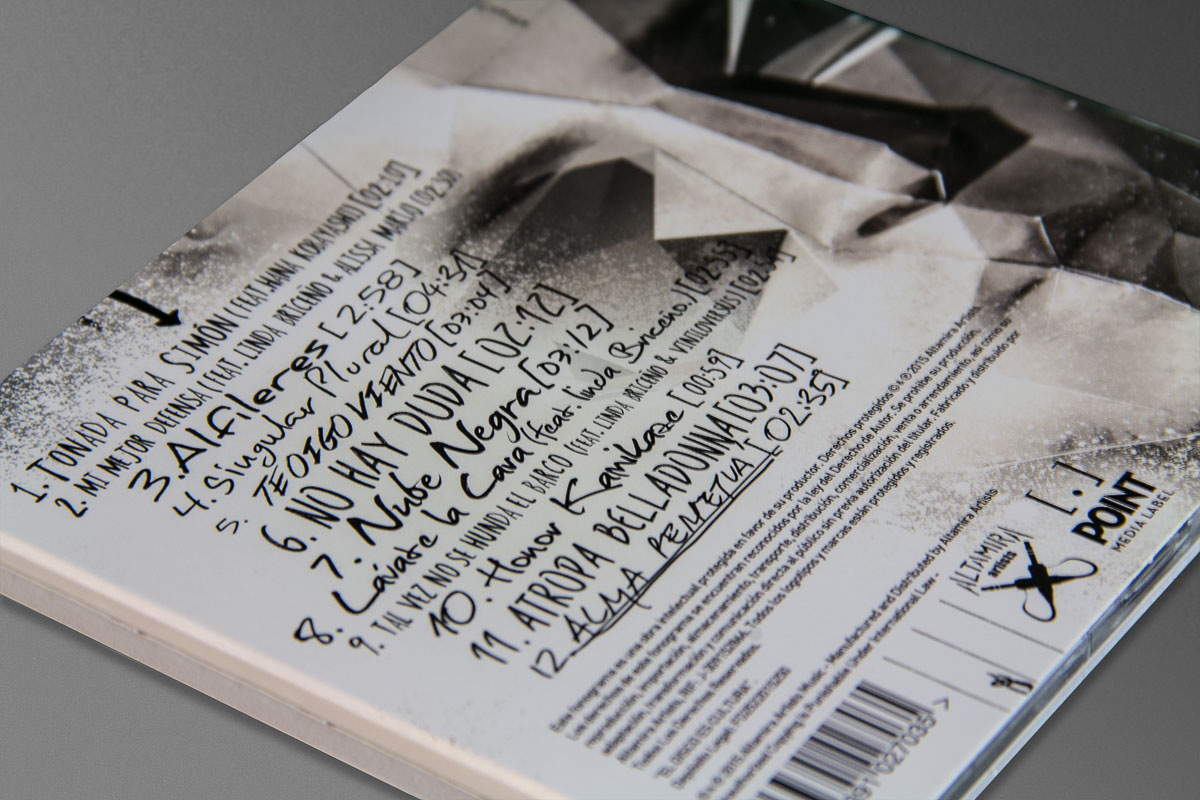 1. TONADA PARA SIMÓN (FEAT. HANA KOBAYASHI) [02:10]
2. MI MEJOR DEFENSA (FEAT. LINDA BRICEÑO & ALISSA MAIO) [02:30]
3. Alfileres [2:58]
4. Singular Plural [04:31]
5. TE DIGO VIENTO [03:04]
6. NO HAY DUDA [02:12]
7. Nube Negra [03:12]
8. Lávate la Cara (feat. linda Briceño) [02:55]
9. TAL VEZ NO SE HUNDA EL BARCO (FEAT. LINDA BRICEÑO & VINILOVERSUS)
10. Honor Kamikaze [00:59]
11. ATROPA BELLADONNA [03:07]
12. ALMA PERPETUA [02:35]
Este fonograma es una obra intelectual protegida en favor de su productor. Derechos protegidos © ℗ 2015 Altamira Artists.
Los derechos de este fonograma se encuentran reconocidos por la ley del Derecho de Autor. Se prohíbe su producción,
importación, almacenamiento, transporte, distribución, comercialización, venta o arrendamiento, así como su
adaptación, transformación y comunicación directa al público sin previa autorización del titular. Fabricado y distribuido por
Altamira Artists, RIF. Todos los logotipos y marcas están protegidos y registrados.
Todos Los Derechos Reservados.
EL DISCO ES CULTURA
Depósito Legal
2015, Altamira Artists Music - Manufactured and Distributed by Altamira Artists
Unauthorized Copying is Punishable Under International Law -
ALTAMIRA
artists
[.]
POINT
MEDIA LABEL
027035 >